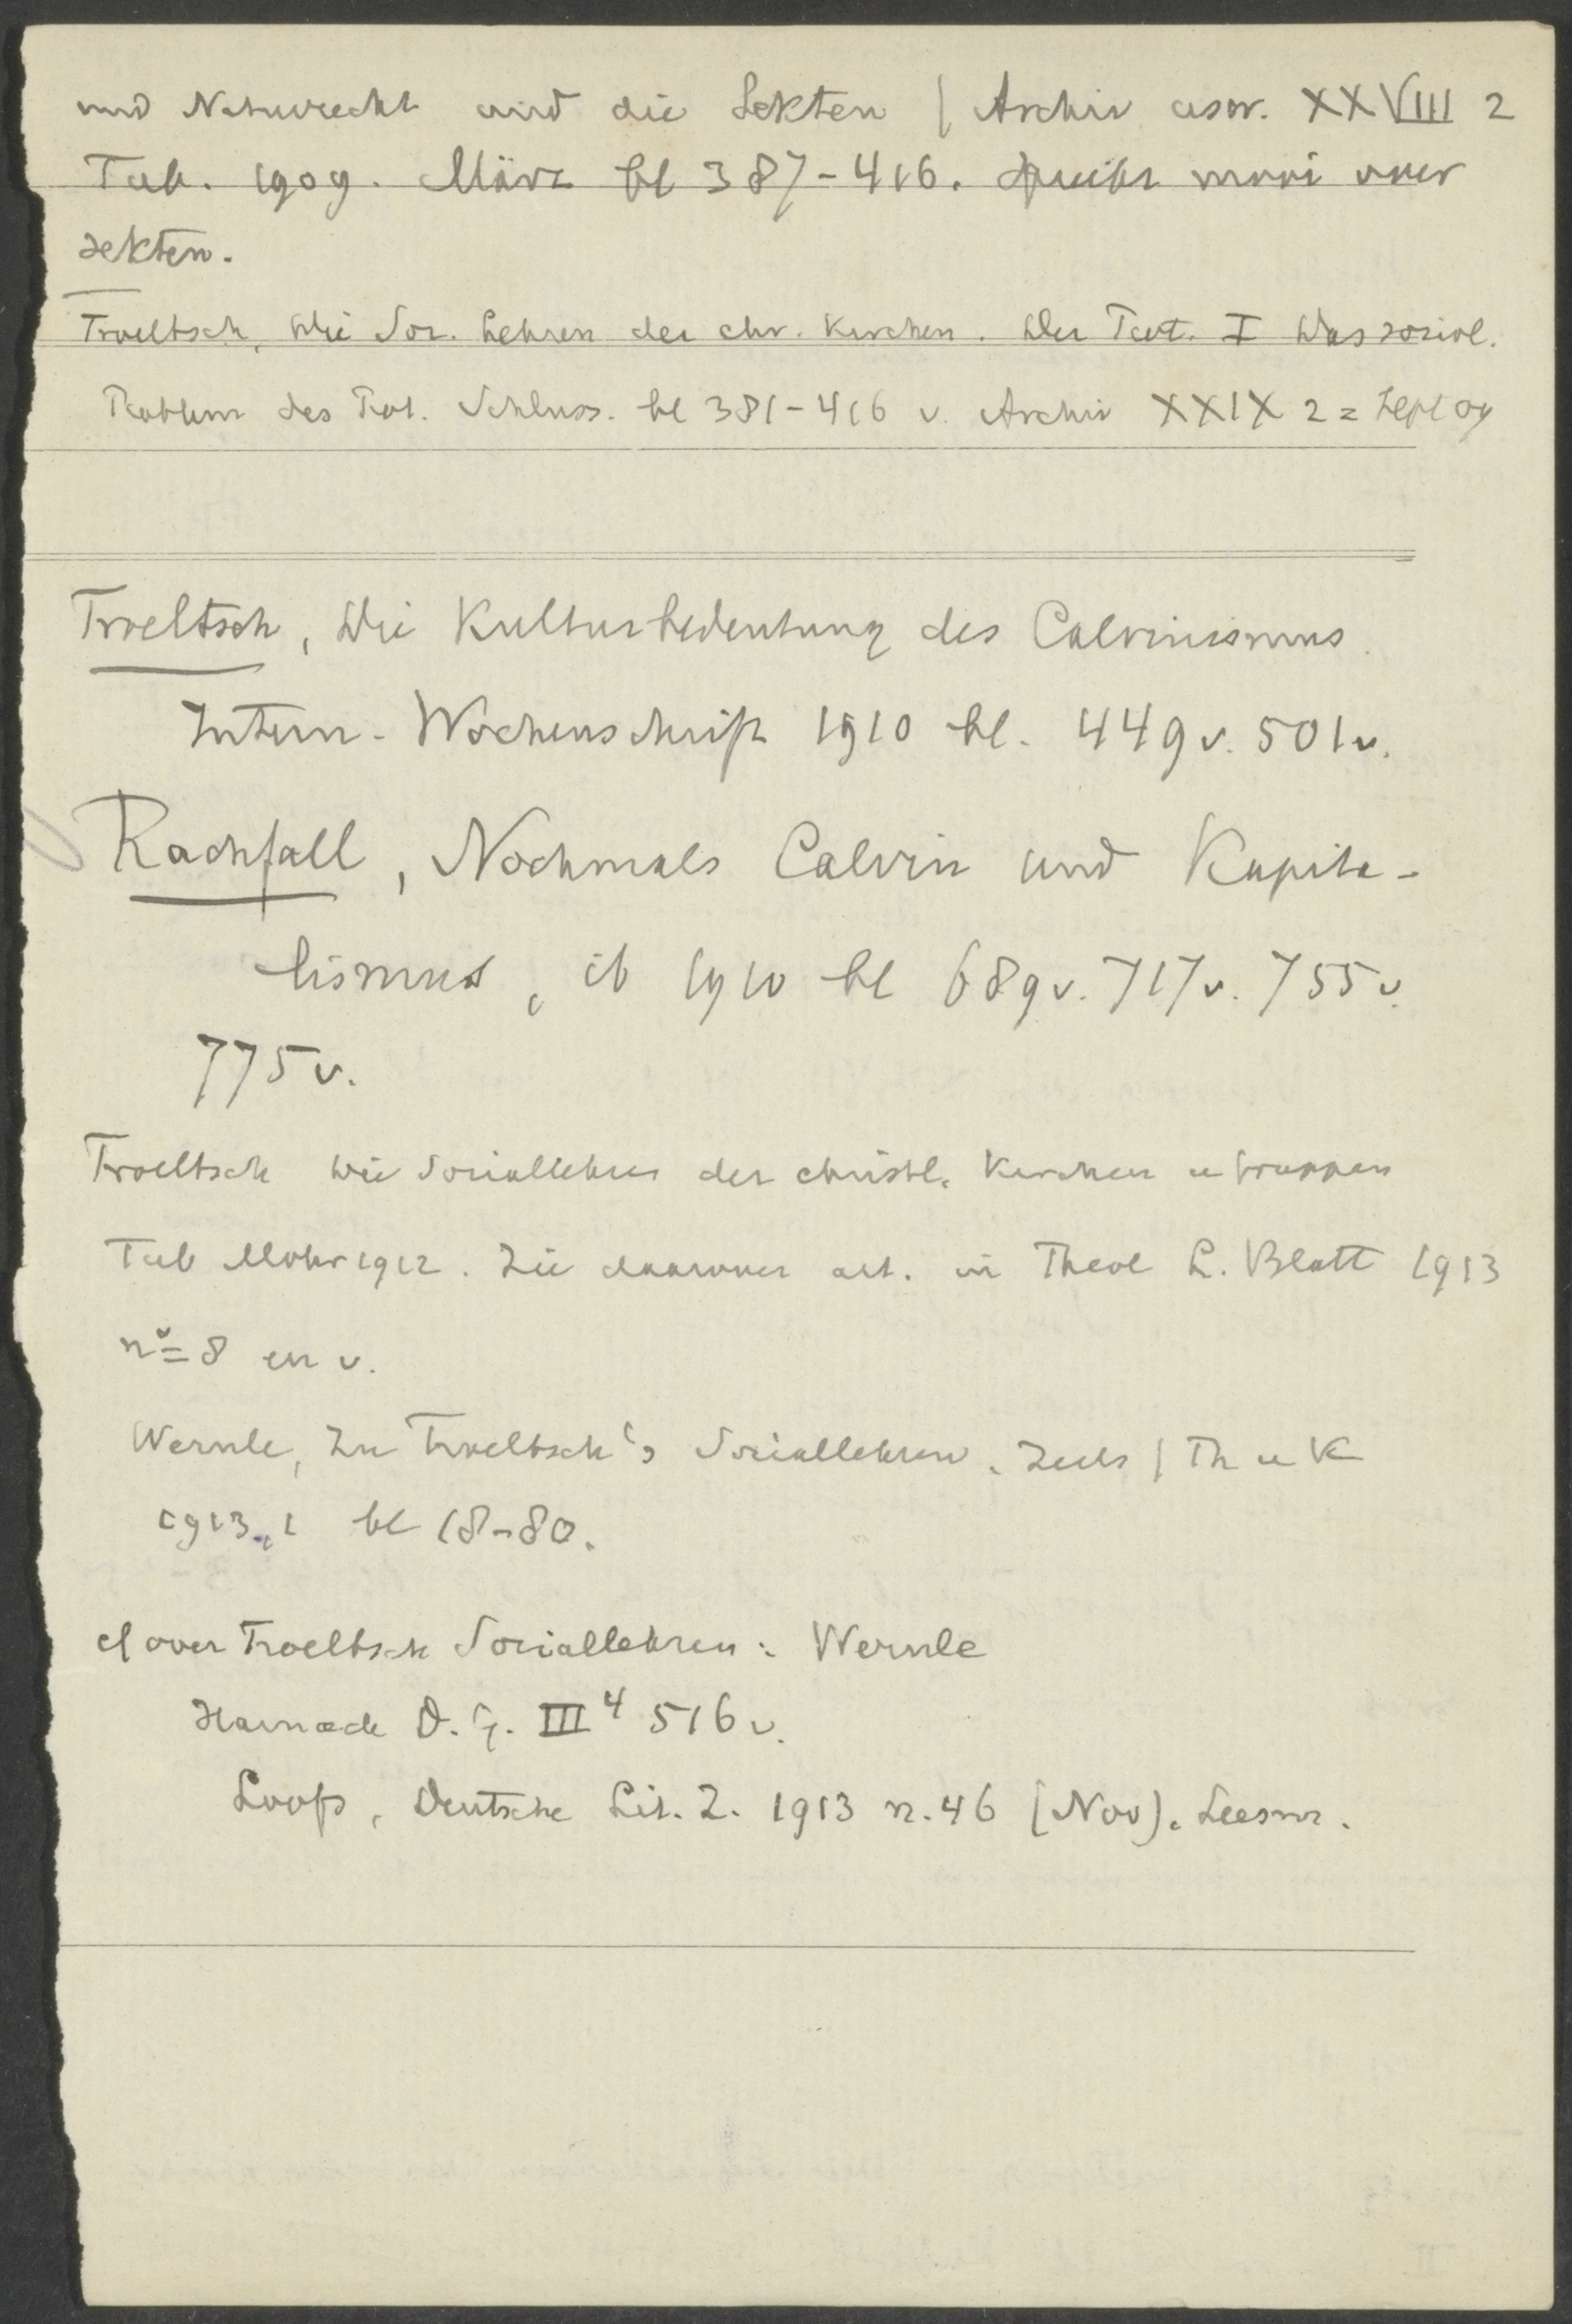 und Naturrecht und die Sekten / Archiv usw. XXVIII 2
Tub. 1909. März bl 387-416. spreekt mooi over
sekten.
Troeltsch, Die Soz. Lehren der chr. Kirchen. Der Prot. I Das soziol.
Problem des Prot. Schluss. bl 381-416 v. Archiv XXIX 2 = Sept 09
Troeltsch, Die Kulturbedeutung des Calvinismus.
Intern. Wochenschrift 1910 bl. 449v. 501v.
Rachfall, Nochmals Calvin und Kapita-
lismus, ib 1910 bl 689v. 717v. 755v.
775v.
Troeltsch Die Soziallehren der christl. Kirchen u Gruppen
Tub Mohr 1912. Zie daarover art. in Theol L. Blatt 1913
no 8 en v.
Wernle, Zu Troeltsch's Soziallehren. Zeits / Th u K
1913, 1 bl 18-80.
cf over Troeltsch Soziallehren: Wernle
Harnack D. G. III 4 516v.
Loofs, Deutsche Lit. Z. 1913 n. 46 (Nov).